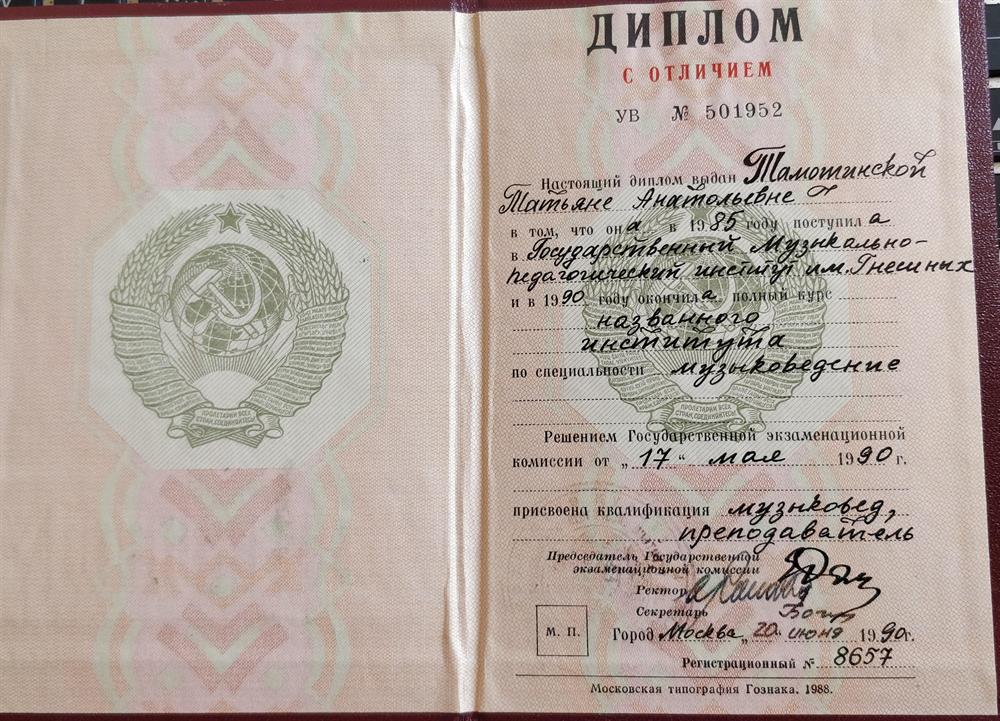 ПРОЛЕТАРИИ ВСЕХ
СТРАН, СОЕДИНЯЙТЕСЬ!
ДИПЛОМ
С ОТЛИЧИЕМ
УВ № 501952
Настоящий диплом выдан Тамотинской
Татьяне Анатольевне
в том, что она в 1985 году поступила
в Государственный Музыкально-
педагогический институт им. Гнесиных
и в 1990 году окончила полный курс
названного
института
по специальности музыковедение
ПРОЛЕТАРИИ ВСЕХ
СТРАН, СОЕДИНЯЙТЕСЬ!
Решением Государственной экзаменационной
комиссии от „17" мая 1990 г.
присвоена квалификация музыковед,
преподаватель
Председатель Государственной
экзаменационной комиссии
Ректор
Секретарь
М. П.
Город Москва „20" июня 1990г.
Регистрационный № 8657
Московская типография Гознака. 1988.